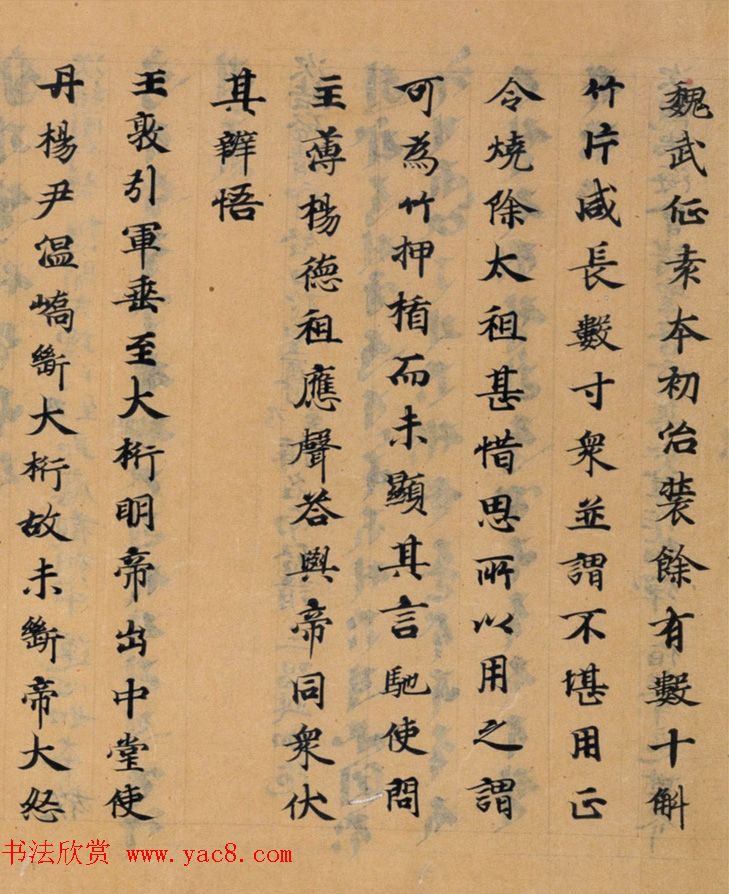 魏武征袁本初治装餘有數十斛
竹片咸長數寸衆並謂不堪用正
令燒除太祖甚惜思所以用之謂
可為竹押楯而未顯其言馳使問
主薄楊德祖應聲荅與帝同衆伏
其辯悟
王敦引軍垂至大桁明帝出中堂使
丹楊尹温嶠斷大桁故未斷帝大怒
书法欣赏 www.yac8.com